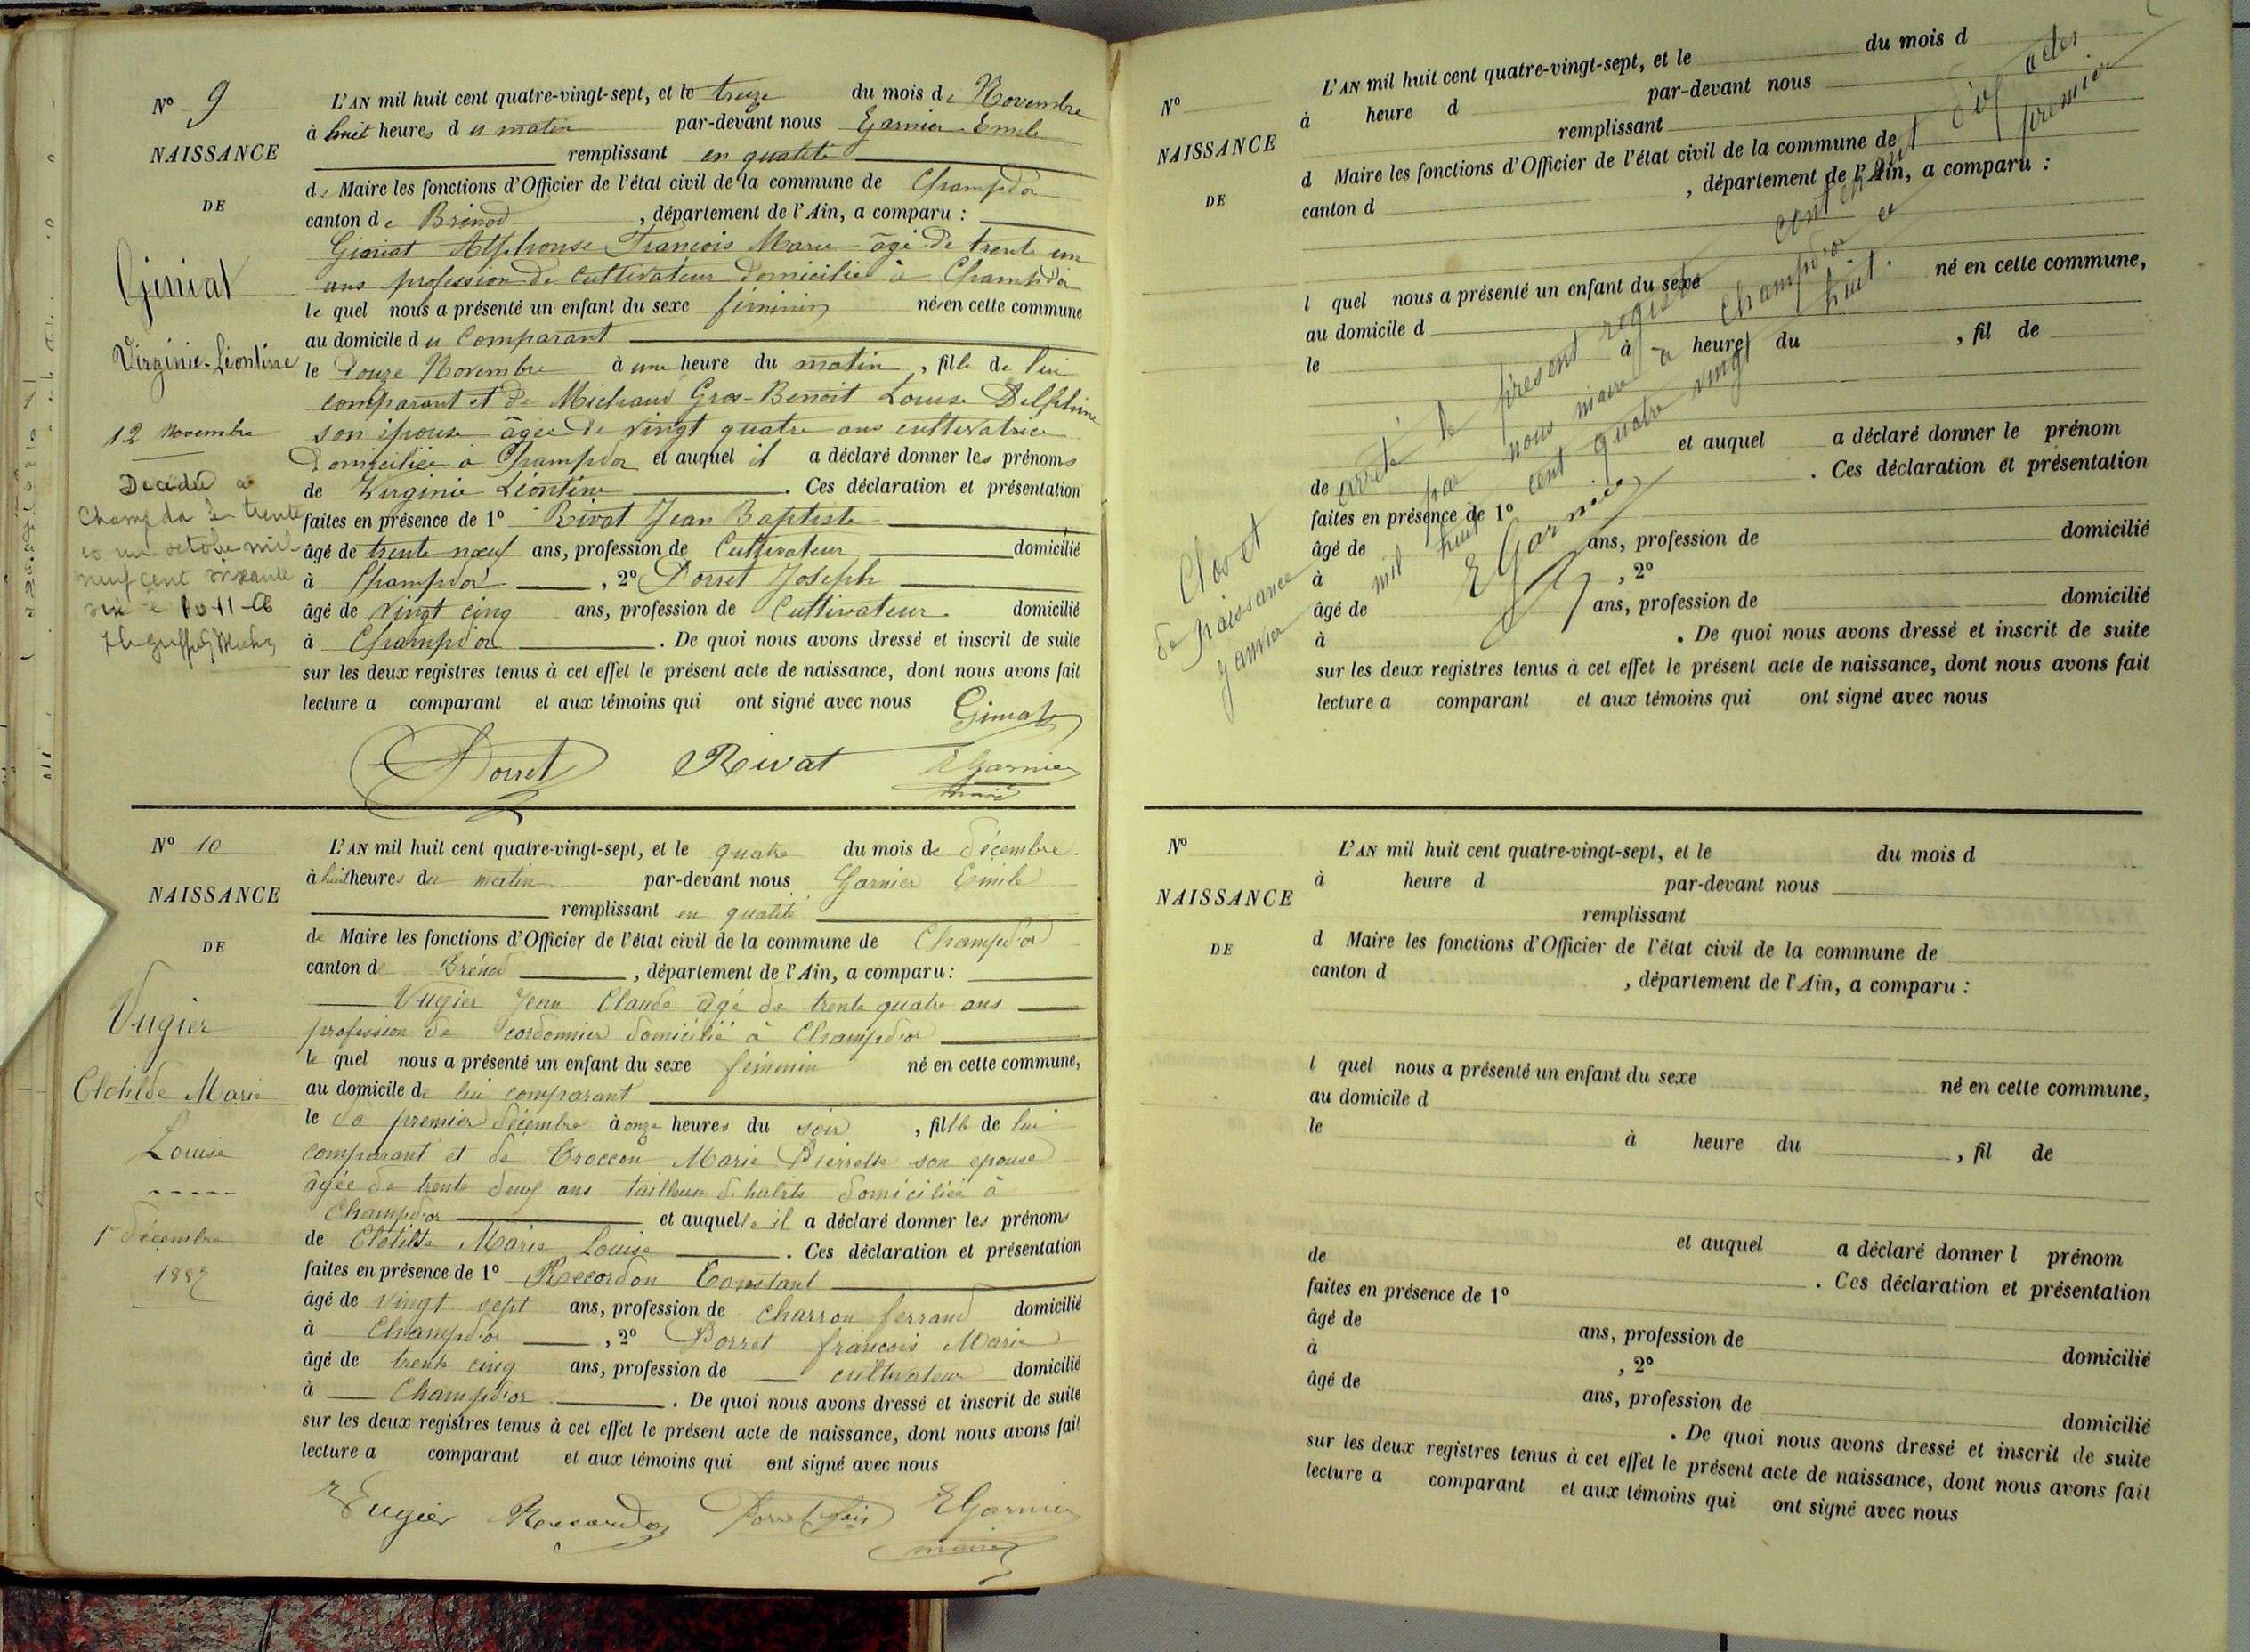 N° 9
NAISSANCE
DE
Giniat
Virginie-Léontine
12 Novembre
Décédée à
Champdor le trente
et un octobre mil
neuf cent soixante
six le
L'AN mil huit cent quatre-vingt-sept, et le treize du mois de Novembre
à huit heures du matin par-devant nous Garnier Emile
remplissant en qualité
de Maire les fonctions d'Officier de l'état civil de la commune de Champdor
canton de Brénod, département de l'Ain, a comparu :
Giniat Alphonse François Marie âgé de trente un
ans profession de cultivateur domicilié à Champdor
le quel nous a présenté un enfant du sexe féminin né en cette commune
au domicile du Comparant
le Douze Novembre à une heure du matin, fille de lui
comparant et de Michaud Gros-Benoit Louise Delphine
son épouse âgée de vingt quatre ans cultivatrice
Domiciliée à Champdor et auquel il a déclaré donner les prénoms
de Virginie Léontine. Ces déclaration et présentation
faites en présence de 1° Rivat Jean Baptiste
âgé de trente nœuf ans, profession de Cultivateur domicilié
à Champdor, 2° Dorret Joseph
âgé de vingt cinq ans, profession de Cultivateur domicilié
à Champdor. De quoi nous avons dressé et inscrit de suite
sur les deux registres tenus à cet effet le présent acte de naissance, dont nous avons fait
lecture a comparant et aux témoins qui ont signé avec nous
Giniat
Dorret Rivat EGarnier
maire
N° 10
NAISSANCE
DE
Vugier
Clotilde Marie
Louise
1er décembre
1887
L'AN mil huit cent quatre-vingt-sept, et le quatre du mois de décembre
à huit heures du matin par-devant nous Garnier Emile
remplissant en qualité
de Maire les fonctions d'Officier de l'état civil de la commune de Champdor
canton de Brénod, département de l'Ain, a comparu :
Vugier Jean Claude âgé de trente quatre ans
profession de cordonnier domicilié à Champdor
le quel nous a présenté un enfant du sexe féminin né en cette commune,
au domicile de lui comparant
le premier décembre à onze heures du soir, fille de lui
comparant et de Troccon Marie Pierrette son epouse
âgée de trente deux ans tailleuse d'habits domiciliée à
Champdor et auquelle il a déclaré donner les prénoms
de Clotilde Marie Louise. Ces déclaration et présentation
faites en présence de 1° Reccordon Constant
âgé de vingt sept ans, profession de charron ferrand domicilié
à Champdor, 2° Dorret françois Marie
âgé de trente cinq ans, profession de cultivateur domicilié
à Champdor. De quoi nous avons dressé et inscrit de suite
sur les deux registres tenus à cet effet le présent acte de naissance, dont nous avons fait
lecture a comparant et aux témoins qui ont signé avec nous
Vugier Reccordon Dorret fois EGarnier
maire
N°
NAISSANCE
DE
L'AN mil huit cent quatre-vingt-sept, et le du mois d
à heure d par-devant nous
remplissant
d Maire les fonctions d'Officier de l'état civil de la commune de
canton d , département de l'Ain, a comparu :
l quel nous a présenté un enfant du sexe né en cette commune,
au domicile d
le à heure du , fil de
et auquel a déclaré donner le prénom
de . Ces déclaration et présentation
faites en présence de 1°
âgé de ans, profession de domicilié
à , 2°
âgé de ans, profession de domicilié
à . De quoi nous avons dressé et inscrit de suite
sur les deux registres tenus à cet effet le présent acte de naissance, dont nous avons fait
lecture a comparant et aux témoins qui ont signé avec nous
Clos et arrêté le présent registre contenant dix actes
de naissance par nous maire à Champdor ce premier
janvier mil huit cent quatre vingt huit.
EGarnier
N°
NAISSANCE
DE
L'AN mil huit cent quatre-vingt-sept, et le du mois d
à heure d par-devant nous
remplissant
d Maire les fonctions d'Officier de l'état civil de la commune de
canton d , département de l'Ain, a comparu :
l quel nous a présenté un enfant du sexe né en cette commune,
au domicile d
le à heure du , fil de
et auquel a déclaré donner l prénom
de . Ces déclaration et présentation
faites en présence de 1°
âgé de ans, profession de domicilié
à , 2°
âgé de ans, profession de domicilié
. De quoi nous avons dressé et inscrit de suite
sur les deux registres tenus à cet effet le présent acte de naissance, dont nous avons fait
lecture a comparant et aux témoins qui ont signé avec nous